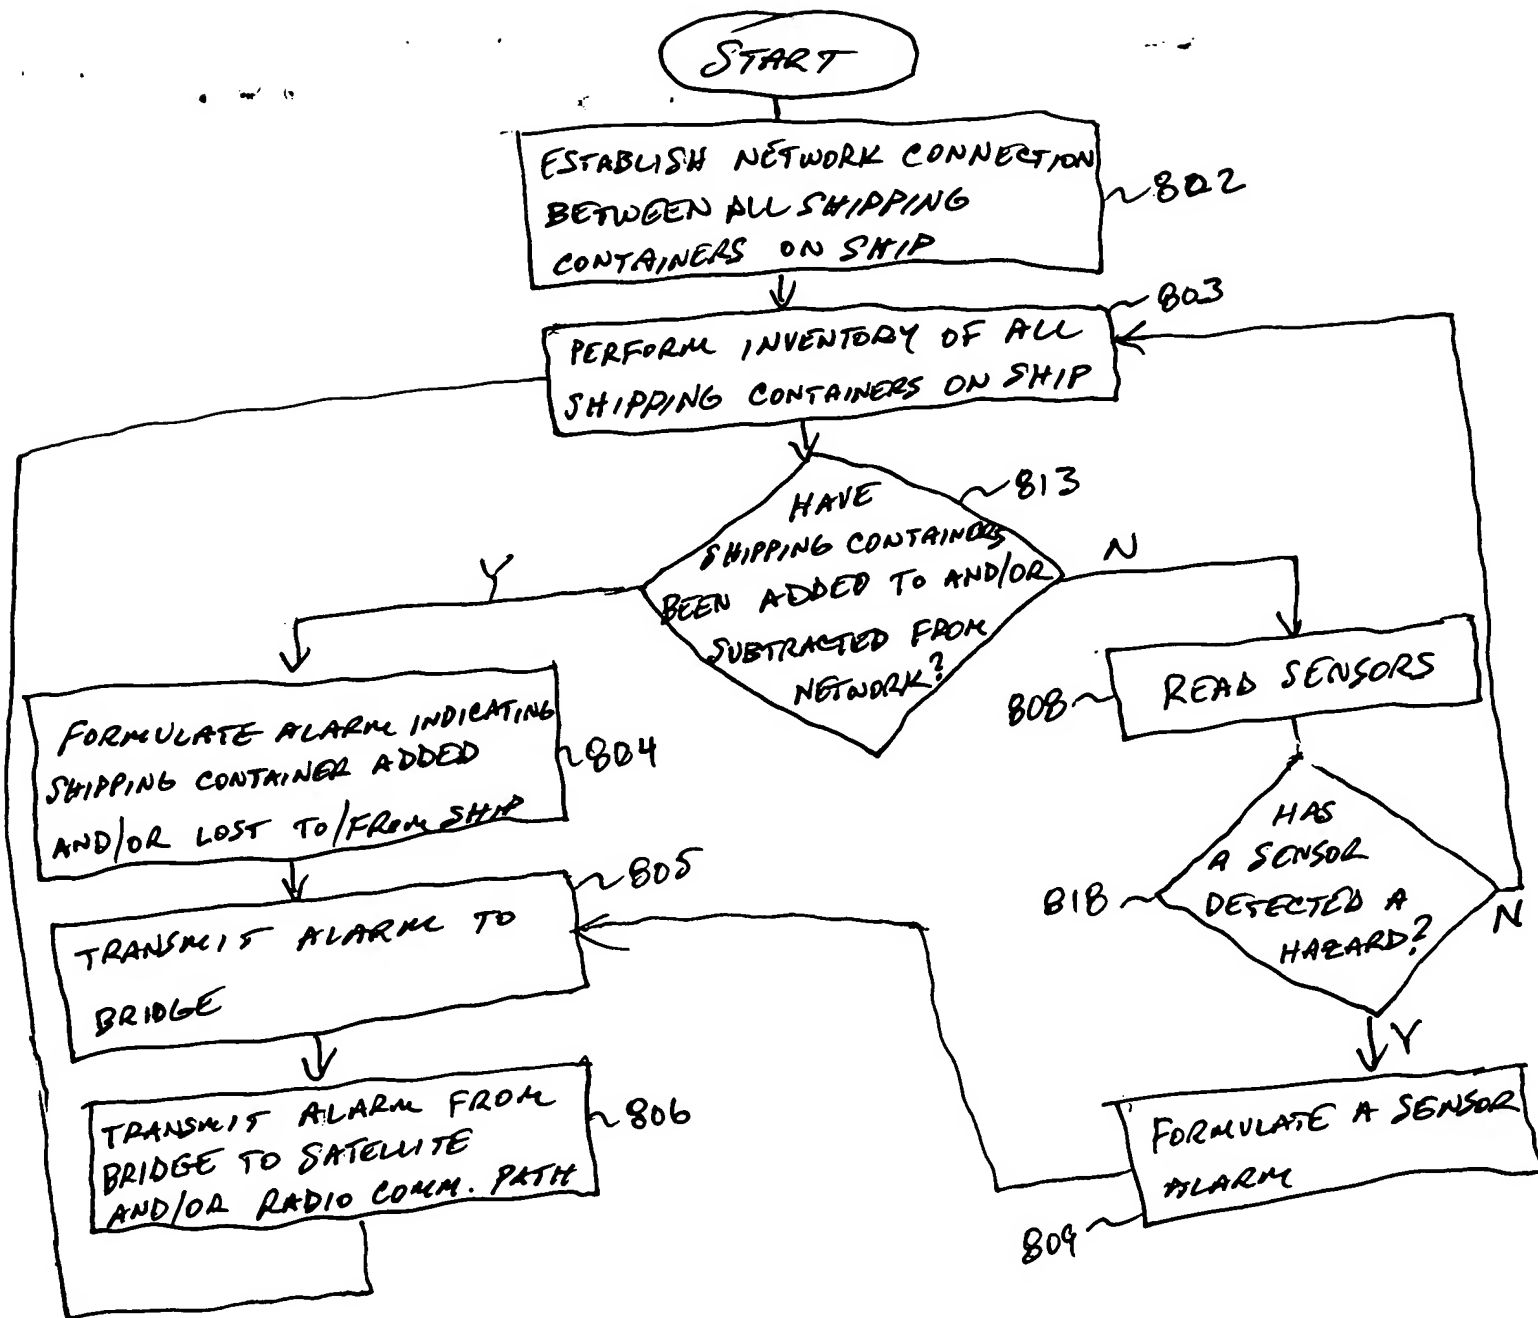 START
ESTABLISH NETWORK CONNECTION
BETWEEN ALL SHIPPING
CONTAINERS ON SHIP
802
PERFORM INVENTORY OF ALL
SHIPPING CONTAINERS ON SHIP
803
HAVE
SHIPPING CONTAINERS
BEEN ADDED TO AND/OR
SUBTRACTED FROM
NETWORK?
813
Y
N
FORMULATE ALARM INDICATING
SHIPPING CONTAINER ADDED
AND/OR LOST TO/FROM SHIP
804
TRANSMIT ALARM TO
BRIDGE
805
TRANSMIT ALARM FROM
BRIDGE TO SATELLITE
AND/OR RADIO COMM. PATH
806
READ SENSORS
808
HAS
A SENSOR
DETECTED A
HAZARD?
818
N
Y
FORMULATE A SENSOR
ALARM
809